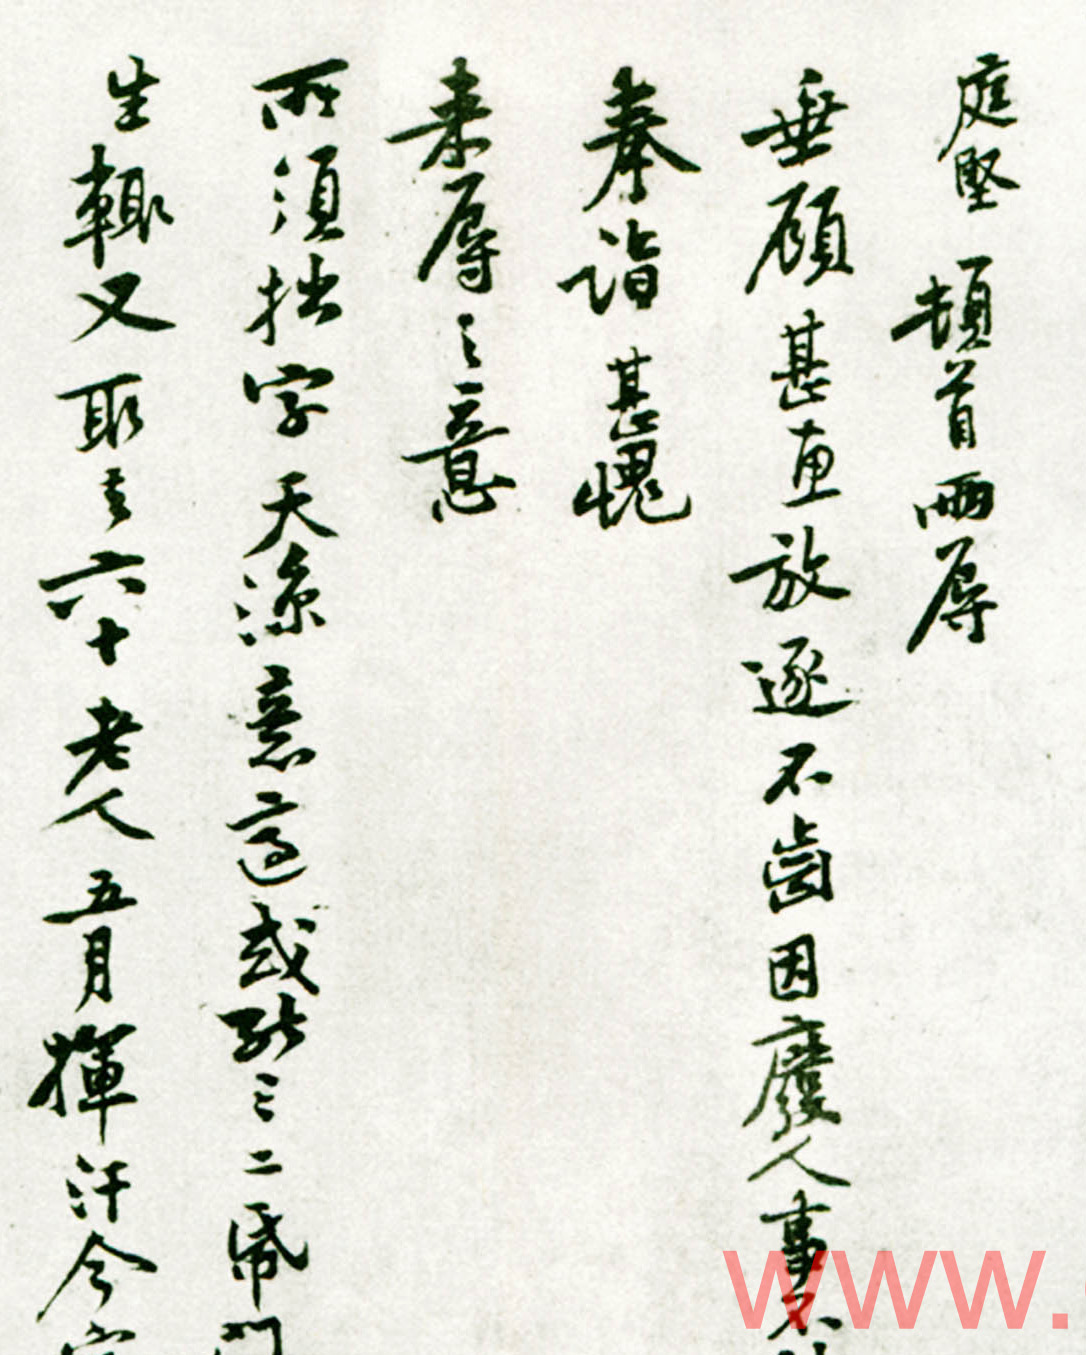 庭堅頓首兩辱
垂顧甚惠放逐不齒因廢人事不
奉詣甚愧
来辱之意
所須拙字天涼意適或能三二紙門
生輒又取去六十老人五月揮汗今
www.